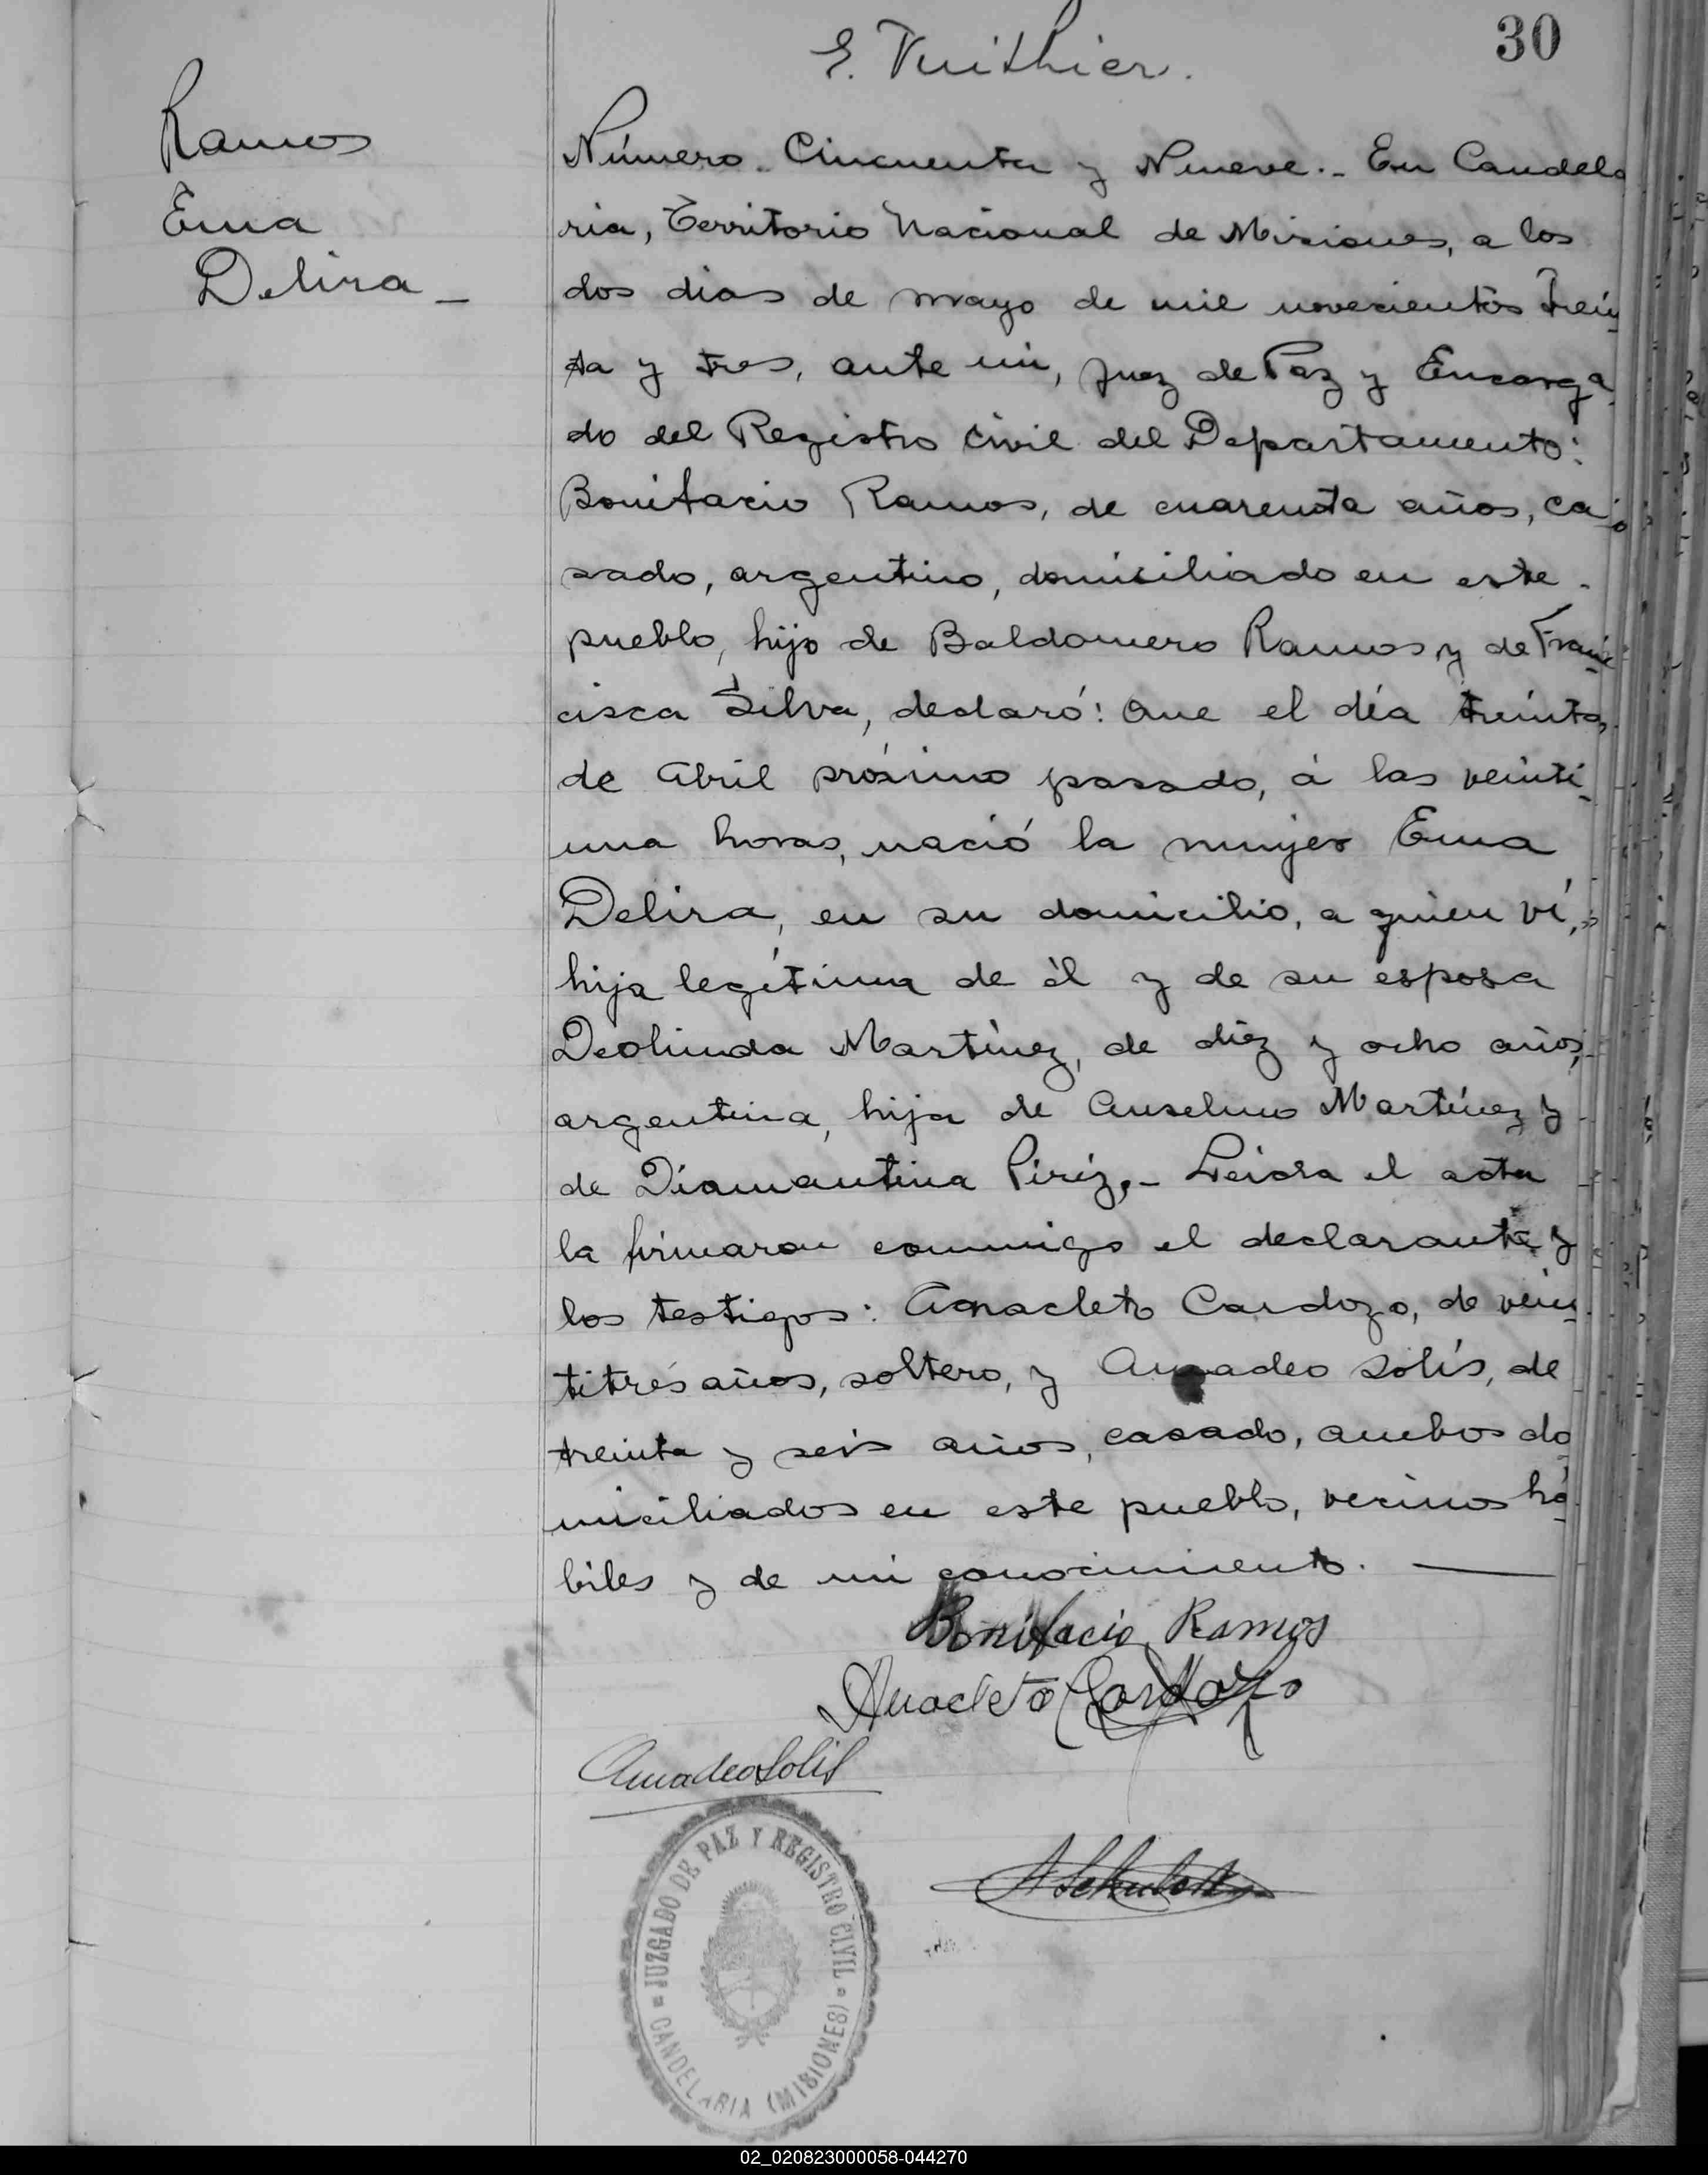 30
E. Vuithier.
Ramos
Ema
Delira -
Número. Cincuenta y Nueve.- En Candela
ria, Territorio Nacional de Misiones, a los
dos dias de mayo de mil novecientos trein
ta y tres, ante mi, Juez de Paz y Encarga
do del Registro Civil del Departamento:
Bonifacio Ramos, de cuarenta años, ca
sado, argentino, domiciliado en este
pueblo, hijo de Baldomero Ramos y de Fran
cisca Silva, declaró: Que el día treinta
de Abril próximo pasado, á las veinti
una horas, nació la mujer Ema
Delira, en su domicilio, a quien ví,
hija legítima de él y de su esposa
Deolinda Martínez, de diez y ocho años,
argentina, hija de Anselmo Martínez y
de Diamantina Piriz.- Leida el acta
la firmaron conmigo el declarante y
los testigos: Anacleto Cardozo, de vein
titrés años, soltero, y Amadeo Solís, de
treinta y seis años, casado, ambos do
miciliados en este pueblo, vecinos há
biles y de mi conocimiento.
Bonifacio Ramos
Anacleto Cardozo
Amadeo Solis
JUZGADO DE PAZ Y REGISTRO CIVIL
CANDELARIA (MISIONES)
02_020823000058-044270